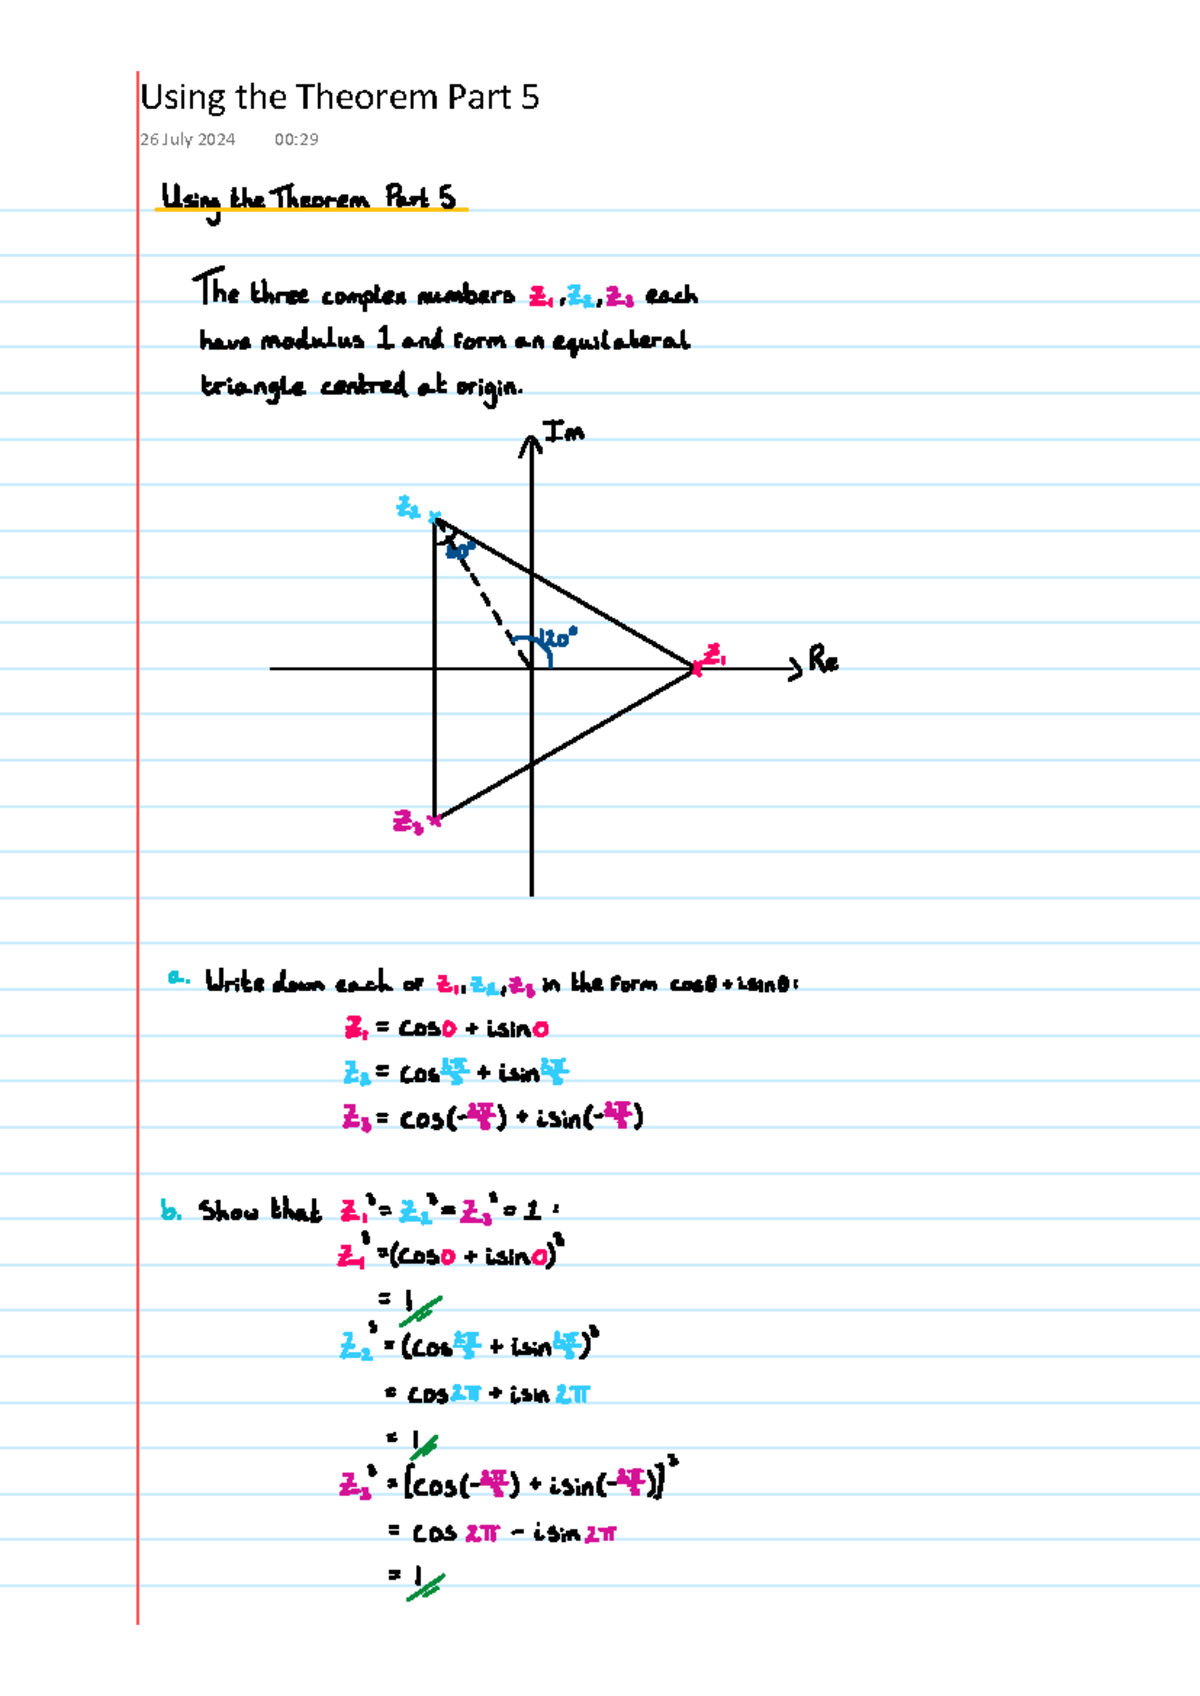 Using the Theorem Part 5
26 July 2024 00:29
Using the Theorem Part 5
The three complex numbers z₁, z₂, z₃ each
have modulus 1 and form an equilateral
triangle centred at origin.
Im
z₂
60°
120°
z₁
Re
z₃
a. Write down each of z₁, z₂, z₃ in the form cosθ + isinθ:
z₁ = cos0 + isin0
z₂ = cos2π/3 + isin2π/3
z₃ = cos(-2π/3) + isin(-2π/3)
b. Show that z₁³ = z₂³ = z₃³ = 1:
z₁³ = (cos0 + isin0)³
= 1
z₂³ = (cos2π/3 + isin2π/3)³
= cos2π + isin2π
= 1
z₃³ = [cos(-2π/3) + isin(-2π/3)]³
= cos2π - isin2π
= 1